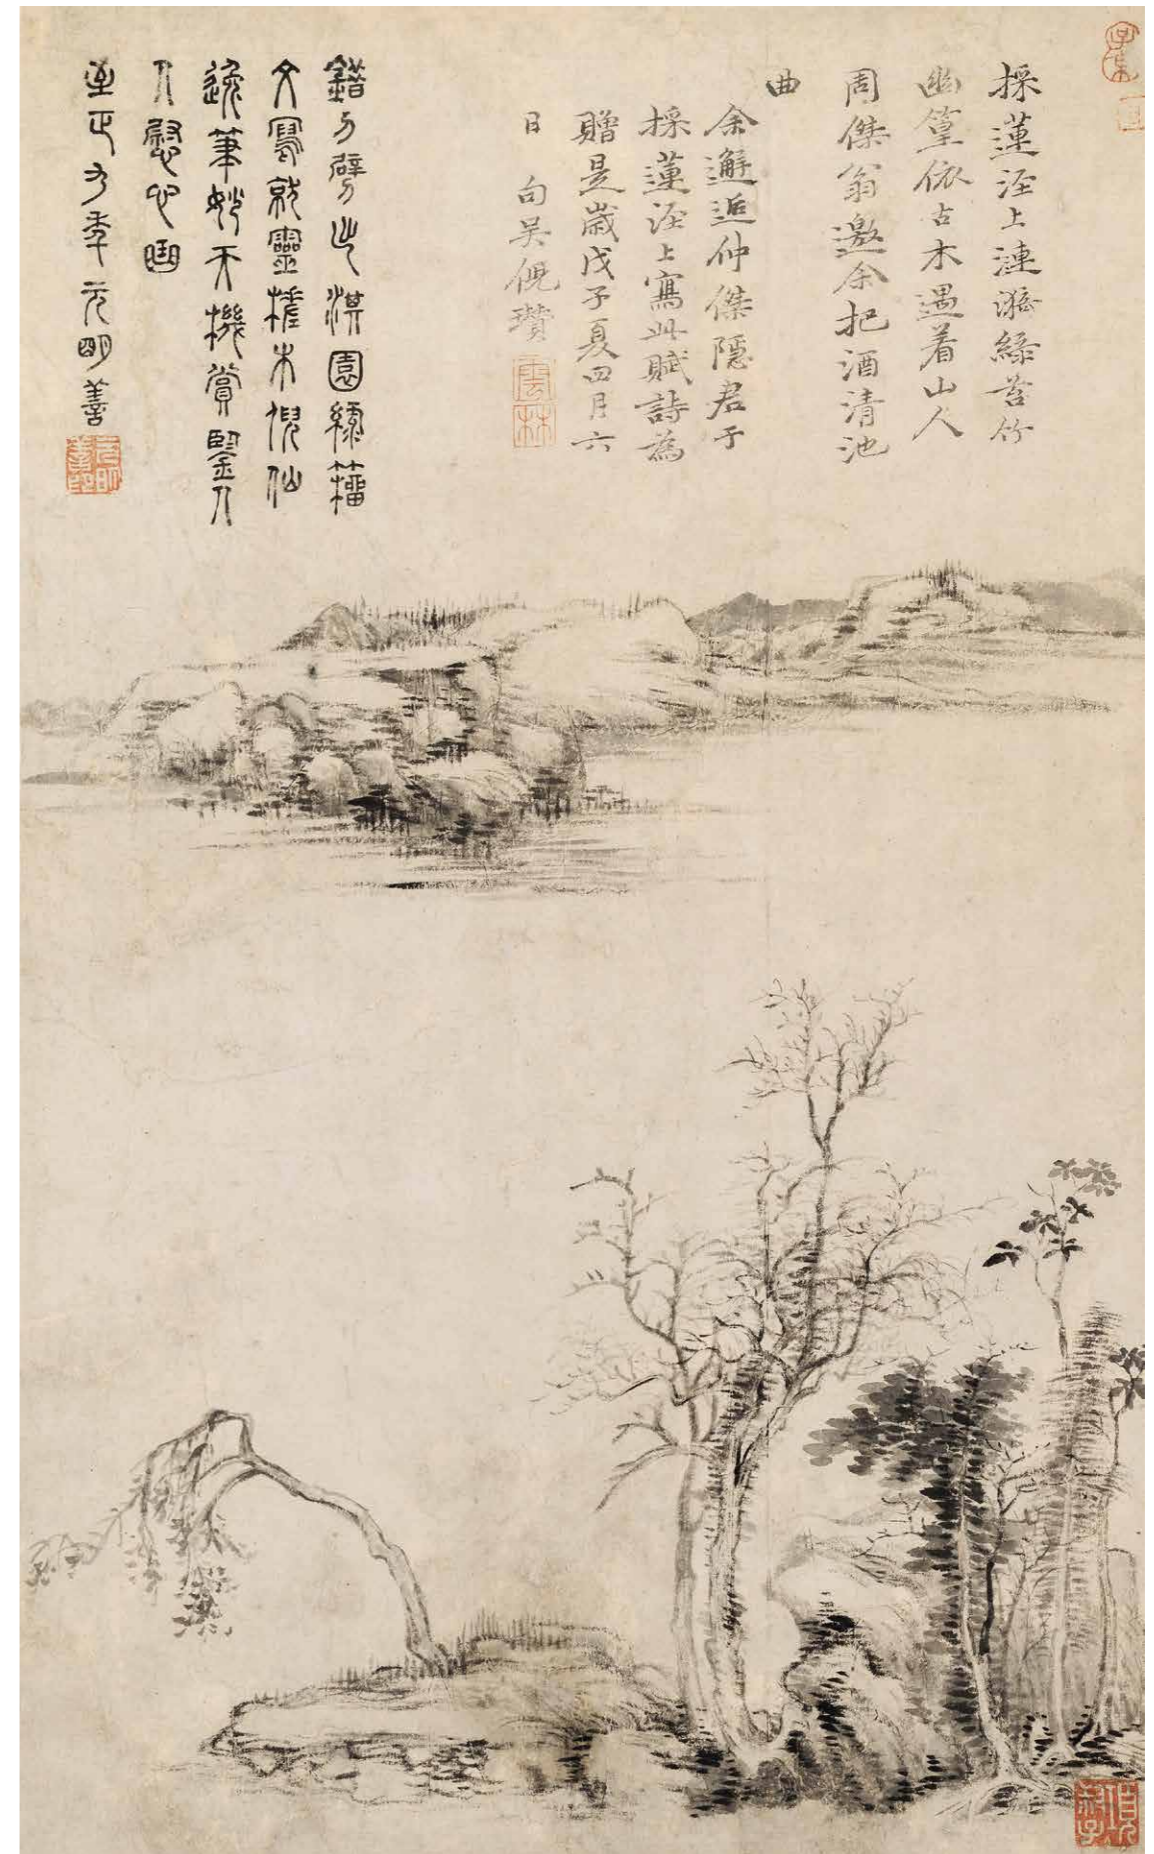 採蓮涇上漣漪綠苔竹
幽篁依古木遇着山人
周傑翁邀余把酒清池
曲
余邂逅仲傑隱君于
採蓮涇上寫此賦詩為
贈是歲戊子夏四月六
日 句吳倪瓚
雲林
錯刀劈出淇園綠籀
文寫就靈槎木倪仙
逸筆妙天機賞鑒人
人慰心曲
至正九年元明善